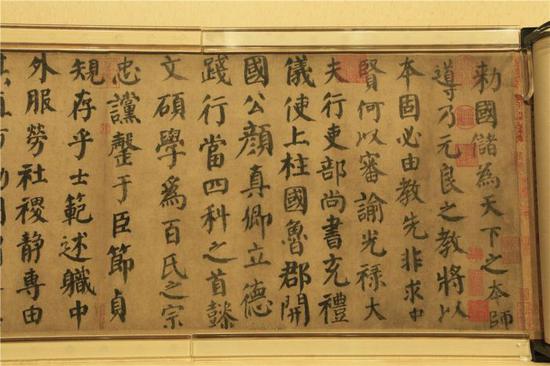 勑國儲為天下之本師
導乃元良之教將以
本固必由教先非求忠
賢何以審諭光祿大
夫行吏部尚書充禮
儀使上柱國魯郡開
國公顏真卿立德
踐行當四科之首懿
文碩學為百氏之宗
忠讜罄于臣節貞
規存乎士範述職中
外服勞社稷靜專由